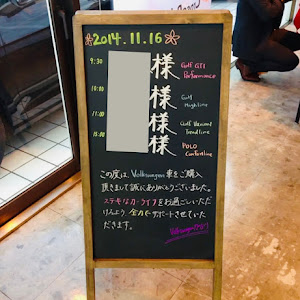 2014.11.16
9:30 様 Golf GTI Performance
10:00 様 Golf Highline
11:00 様 Golf Variant Trendline
15:00 様 POLO Comfortline
この度は、Volkswagen 車をご購入
頂きまして誠にありがとうございました。
ステキなカーライフをお過ごしいただ
けるよう 全力でサポートさせていた
だきます。